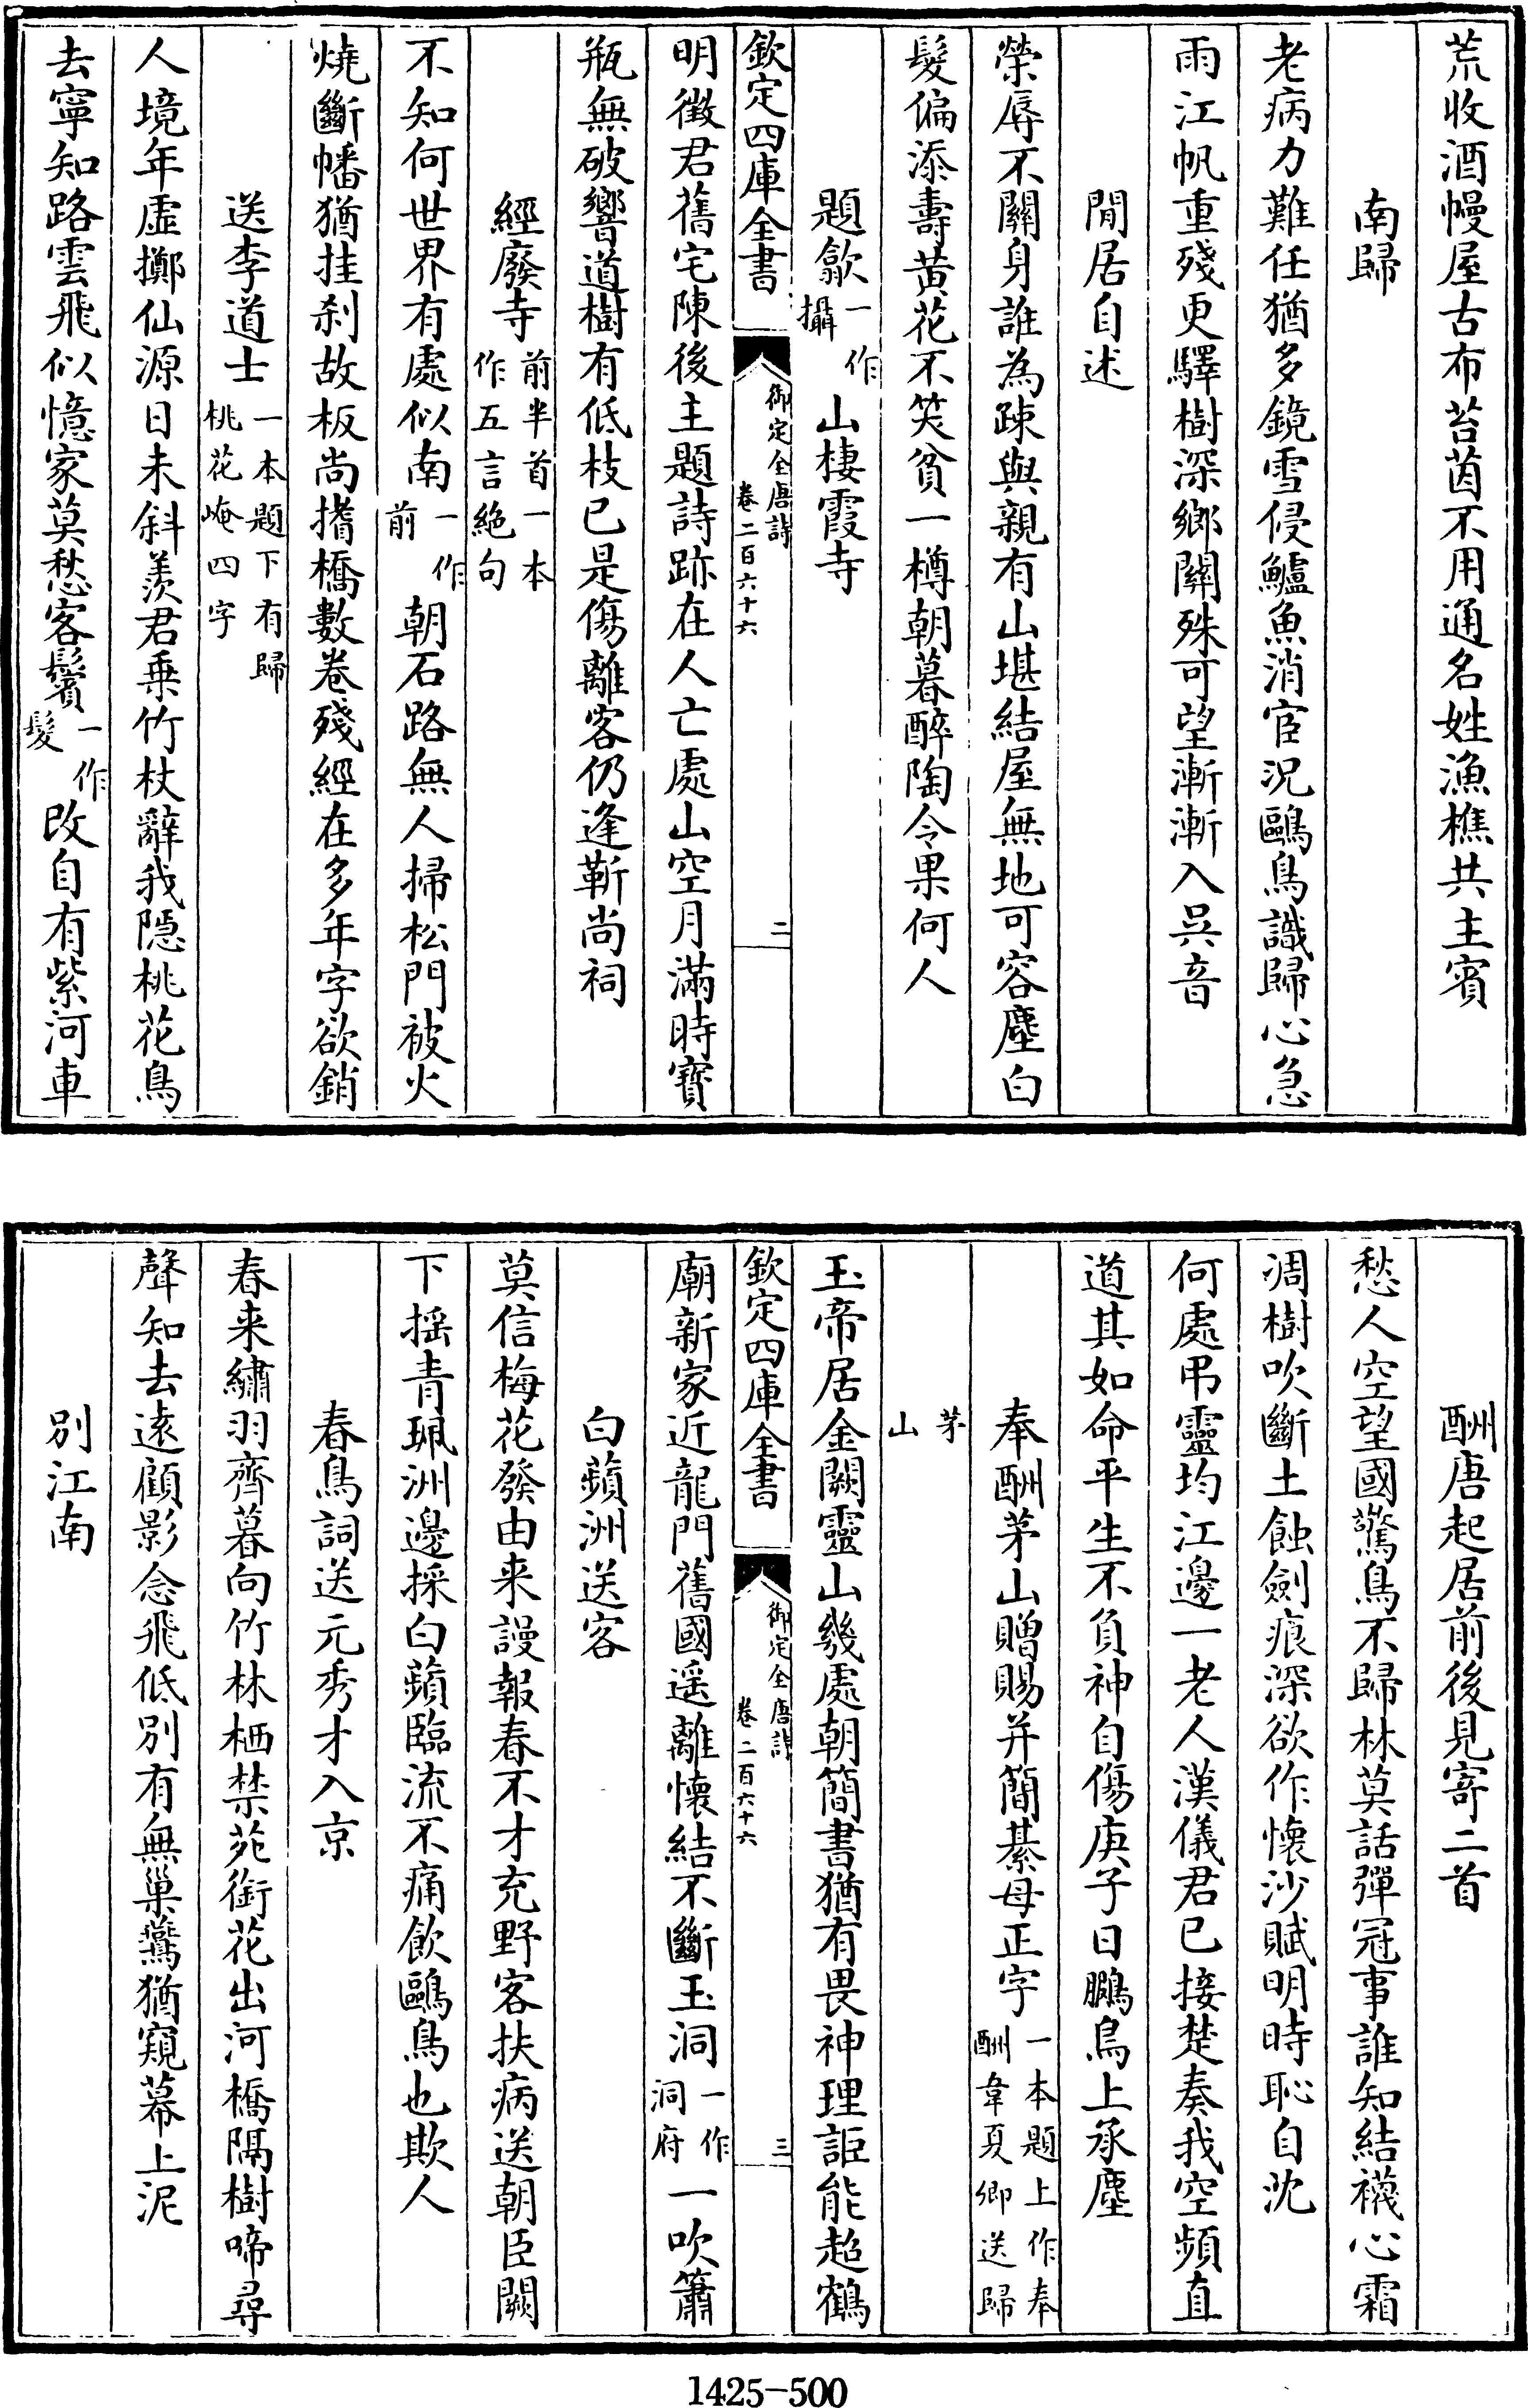 荒收酒幔屋古布苔茵不用通名姓漁樵共主賓
南歸
老病力難任猶多鏡雪侵鱸魚消宦況鷗鳥識歸心急
雨江帆重殘更驛樹深鄉關殊可望漸漸入吳音
閒居自述
榮辱不關身誰為疎與親有山堪結屋無地可容塵白
髮偏添壽黃花不笑貧一樽朝暮醉陶令果何人
題歙一作攝山棲霞寺
欽定四庫全書
御定全唐詩
卷二百六十六
二
明徵君舊宅陳後主題詩跡在人亡處山空月滿時寶
瓶無破響道樹有低枝已是傷離客仍逢靳尚祠
經廢寺前半首一本作五言絶句
不知何世界有處似南一作前朝石路無人掃松門被火
燒斷幡猶挂刹故板尚搘橋數卷殘經在多年字欲銷
送李道士一本題下有歸桃花崦四字
人境年虛擲仙源日未斜羨君乗竹杖辭我隠桃花鳥
去寧知路雲飛似憶家莫愁客鬢一作髮改自有紫河車
酬唐起居前後見寄二首
愁人空望國驚鳥不歸林莫話彈冠事誰知結襪心霜
凋樹吹斷土蝕劍痕深欲作懷沙賦明時恥自沈
何處弔靈均江邊一老人漢儀君已接楚奏我空頻直
道其如命平生不負神自傷庚子日鵩鳥上承塵
奉酬茅山贈賜并簡綦母正字一本題上作奉酬韋夏卿送歸
茅山
玉帝居金闕靈山幾處朝簡書猶有畏神理詎能超鶴
欽定四庫全書
御定全唐詩
卷二百六十六
三
廟新家近龍門舊國遥離懷結不斷玉洞一作洞府一吹簫
白蘋洲送客
莫信梅花發由来謾報春不才充野客扶病送朝臣闕
下揺青珮洲邊採白蘋臨流不痛飲鷗鳥也欺人
春鳥詞送元秀才入京
春来繡羽齊暮向竹林栖禁苑銜花出河橋隔樹啼尋
聲知去逺顧影念飛低別有無巢鷰猶窺幕上泥
別江南
1425-500